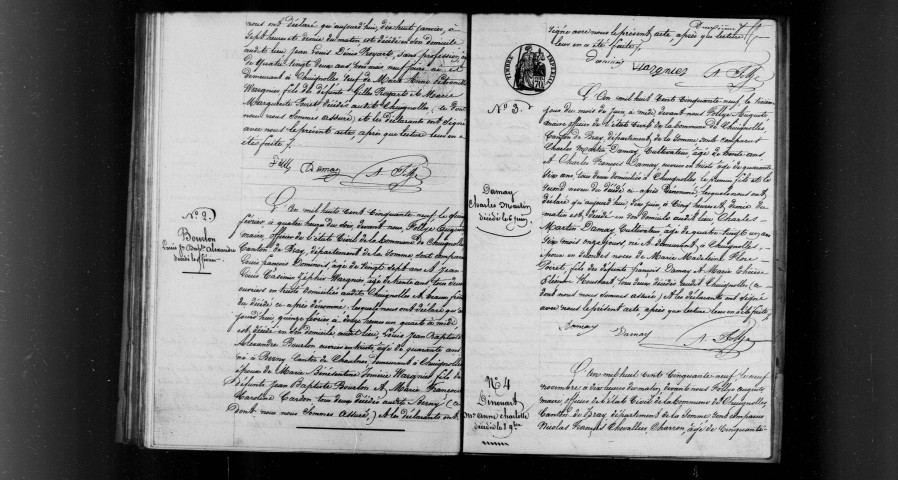 nous ont déclaré qu'aujourd'hui, dix huit janvier, à
sept heures et demie du matin, est décédé en son domicile
audit lieu Jean Louis Denis Royart, sans profession, âgé
de quatre vingt deux ans
demeurant à Chuignolles, veuf de Marie Anne
Wargnier fils de défunts Royart et Marie
Marguerite décédés audit Chuignolles, (ce dont
nous nous sommes assuré) et les déclarants ont signé
avec nous le présent acte, après que lecture leur en a
été faite /.
Damay
N° 2.
Bourlon
Louis Jn Bapte Alexandre
décédé le février
L'an mil huit cent cinquante neuf le quinze
février à quatre heures du soir, devant nous, Follye Auguste
maire, officier de l'état civil de la commune de Chuignolles
Canton de Bray, département de la Somme sont comparus
Louis François âgé de vingt sept ans et Jean
Louis Casimir Wargnier, âgé de trente ans tous deux
ouvriers en domiciliés audit Chuignolles et beaux frères
du décédé ci après dénommé, lesquels nous ont déclaré qu'au
jourd'hui, quinze février à onze heures un quart
est décédé en son domicile audit lieu, Louis Jean Baptiste
Alexandre Bourlon ouvrier en âgé de quarante ans
né à Berny canton de Chaulnes, demeurant à Chuignolles
époux de Marie Wargnier fils de
défunts Jean Baptiste Bourlon et Marie Françoise
Caroline Cardon tous deux décédés audit Berny (ce
dont nous nous sommes assuré) et les déclarants ont
signé avec nous le présent acte, après que lecture
leur en a été faite /.
Damay Wargnier A. Follye
TIMBRE IMPERIAL
N° 3.
Damay
Charles Martin
décédé le 6 juin
L'an mil huit cent cinquante neuf, le
jour du mois de juin, à midi, devant nous Follye Auguste
maire officier de l'état civil de la commune de Chuignolles,
Canton de Bray, département de la Somme sont comparus
Charles Martin Damay, Cultivateur, âgé de trente ans
et Charles François Damay, ouvrier en âgé de quarante
six ans tous deux domiciliés à Chuignolles le premier fils et le
second neveu du décédé ci après dénommé, lesquels nous ont
déclaré qu'aujourd'hui, six juin, à cinq heures et demie du
matin est décédé en son domicile audit lieu Charles
Martin Damay, Cultivateur, âgé de quatre vingt un ans
six mois onze jours, né et demeurant à Chuignolles
époux en secondes noces de Marie Madeleine Flore
Poiret, fils des défunts François Damay et Marie Thérèse
tous deux décédés audit Chuignolles (ce
dont nous nous sommes assuré) et les déclarants ont signé
avec nous le présent acte, après que lecture leur en a été faite /.
Damay Damay A. Follye
N° 4
Marie Anne Charlotte
décédée le 9bre
L'an mil huit cent cinquante neuf, le neuf
novembre à dix heures du matin, devant nous Follye Auguste
maire officier de l'état civil de la commune de Chuignolles,
Canton de Bray, département de la Somme sont comparus
Nicolas François Chevallier, Charron, âgé de cinquante